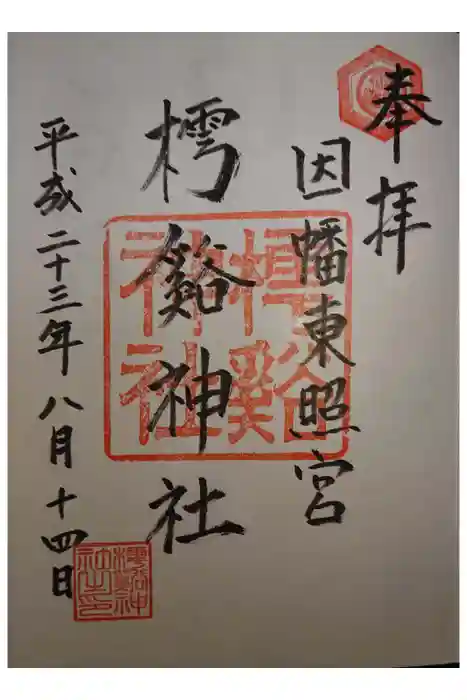 奉拝
因幡東照宮
樗谿神社
平成二十三年八月十四日
樗谿神社